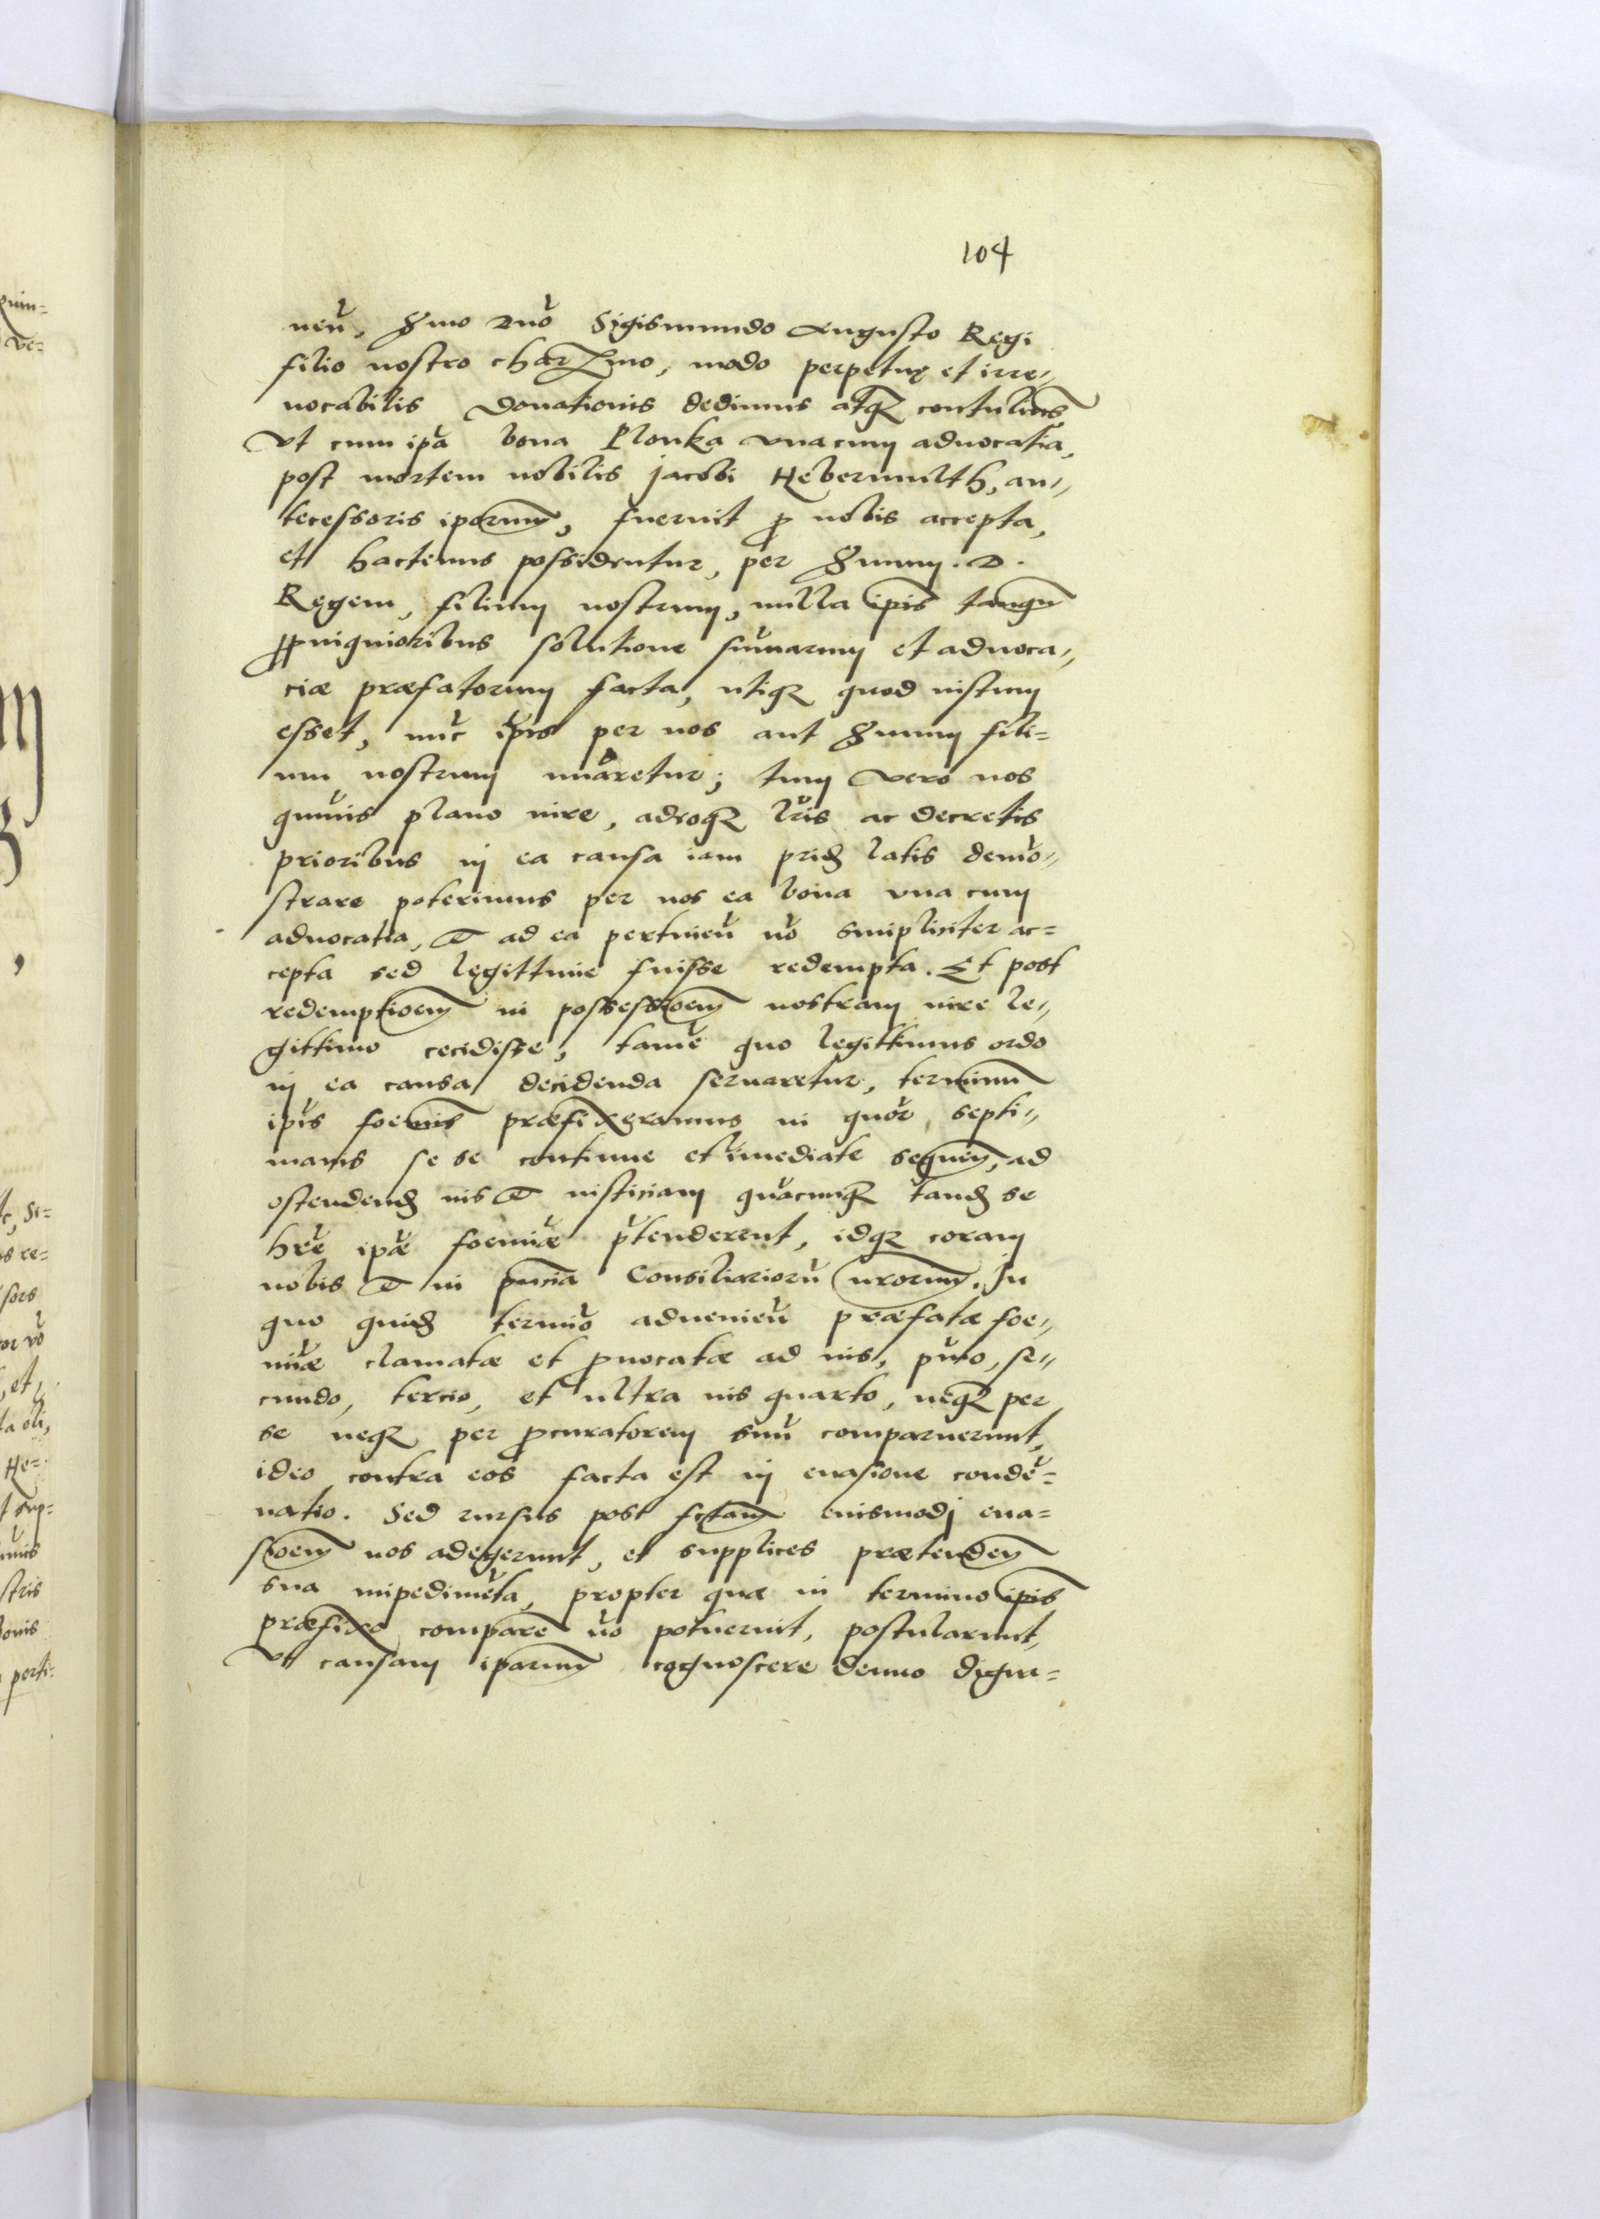 104
neū, Smo Dno Sigismundo Augusto Regi
filio nostro charissmo, modo perpetuę et irre„
uocabilis Donationis dedimus atq; contulims
Vt cum ipa bona Plonka vnacum aduocatia,
post mortem nobilis Jacobi Hebermulth, an„
tecessoris iporum, fuerint p nobis accepta,
et hactenus possidentur, per Smum. D.
Regem, filium nostrum, nulla ipis tanqm
ppinquioribus solutione sūmarum et aduoca„
ciæ præfatorum facta, utiq; quod iustum
esset, nūc ipis per nos aut Smum fili=
um nostrum iuuaretur; tum vero nos
quāuis plano iure, adeoq; lris ac decretis
prioribus in ea causa iam prid latis demō„
strare poterimus per nos ea bona vna cum
aduocatia, & ad ea pertinen nō simpliciter ac=
cepta sed legittime fuisse redempta. Et post
redemptioem in possessioem nostram iure le„
gittimo cecidisse, tamē quo legittimus ordo
in ea causa decidenda seruaretur, terminū
ipis foemis præfixeramus in quor septi„
manis se se continue et imediate sequen, ad
ostendend ius & iusticiam quacunq; tand se
hre ipæ foeminæ ptenderent, idq; coram
nobis & in pncia Consiliarioru nrorum. In
quo quid termino aduenien præfatæ foe„
minæ clamatæ et puocatæ ad ius, pmo, se„
cundo, tercio, et ultra ius quarto, neq; per
se neq; per pcuratorem suū comparuerunt,
ideo contra eos facta est in euasione condē=
natio. Sed rursus post fctam euismodj eua=
sioem nos adegerunt, et supplices prætenden
sua impedimēta, propter quæ in termino ipis
præfixo compare nō potuerint, postularunt,
Vt causam iparum cognoscere denuo digna=